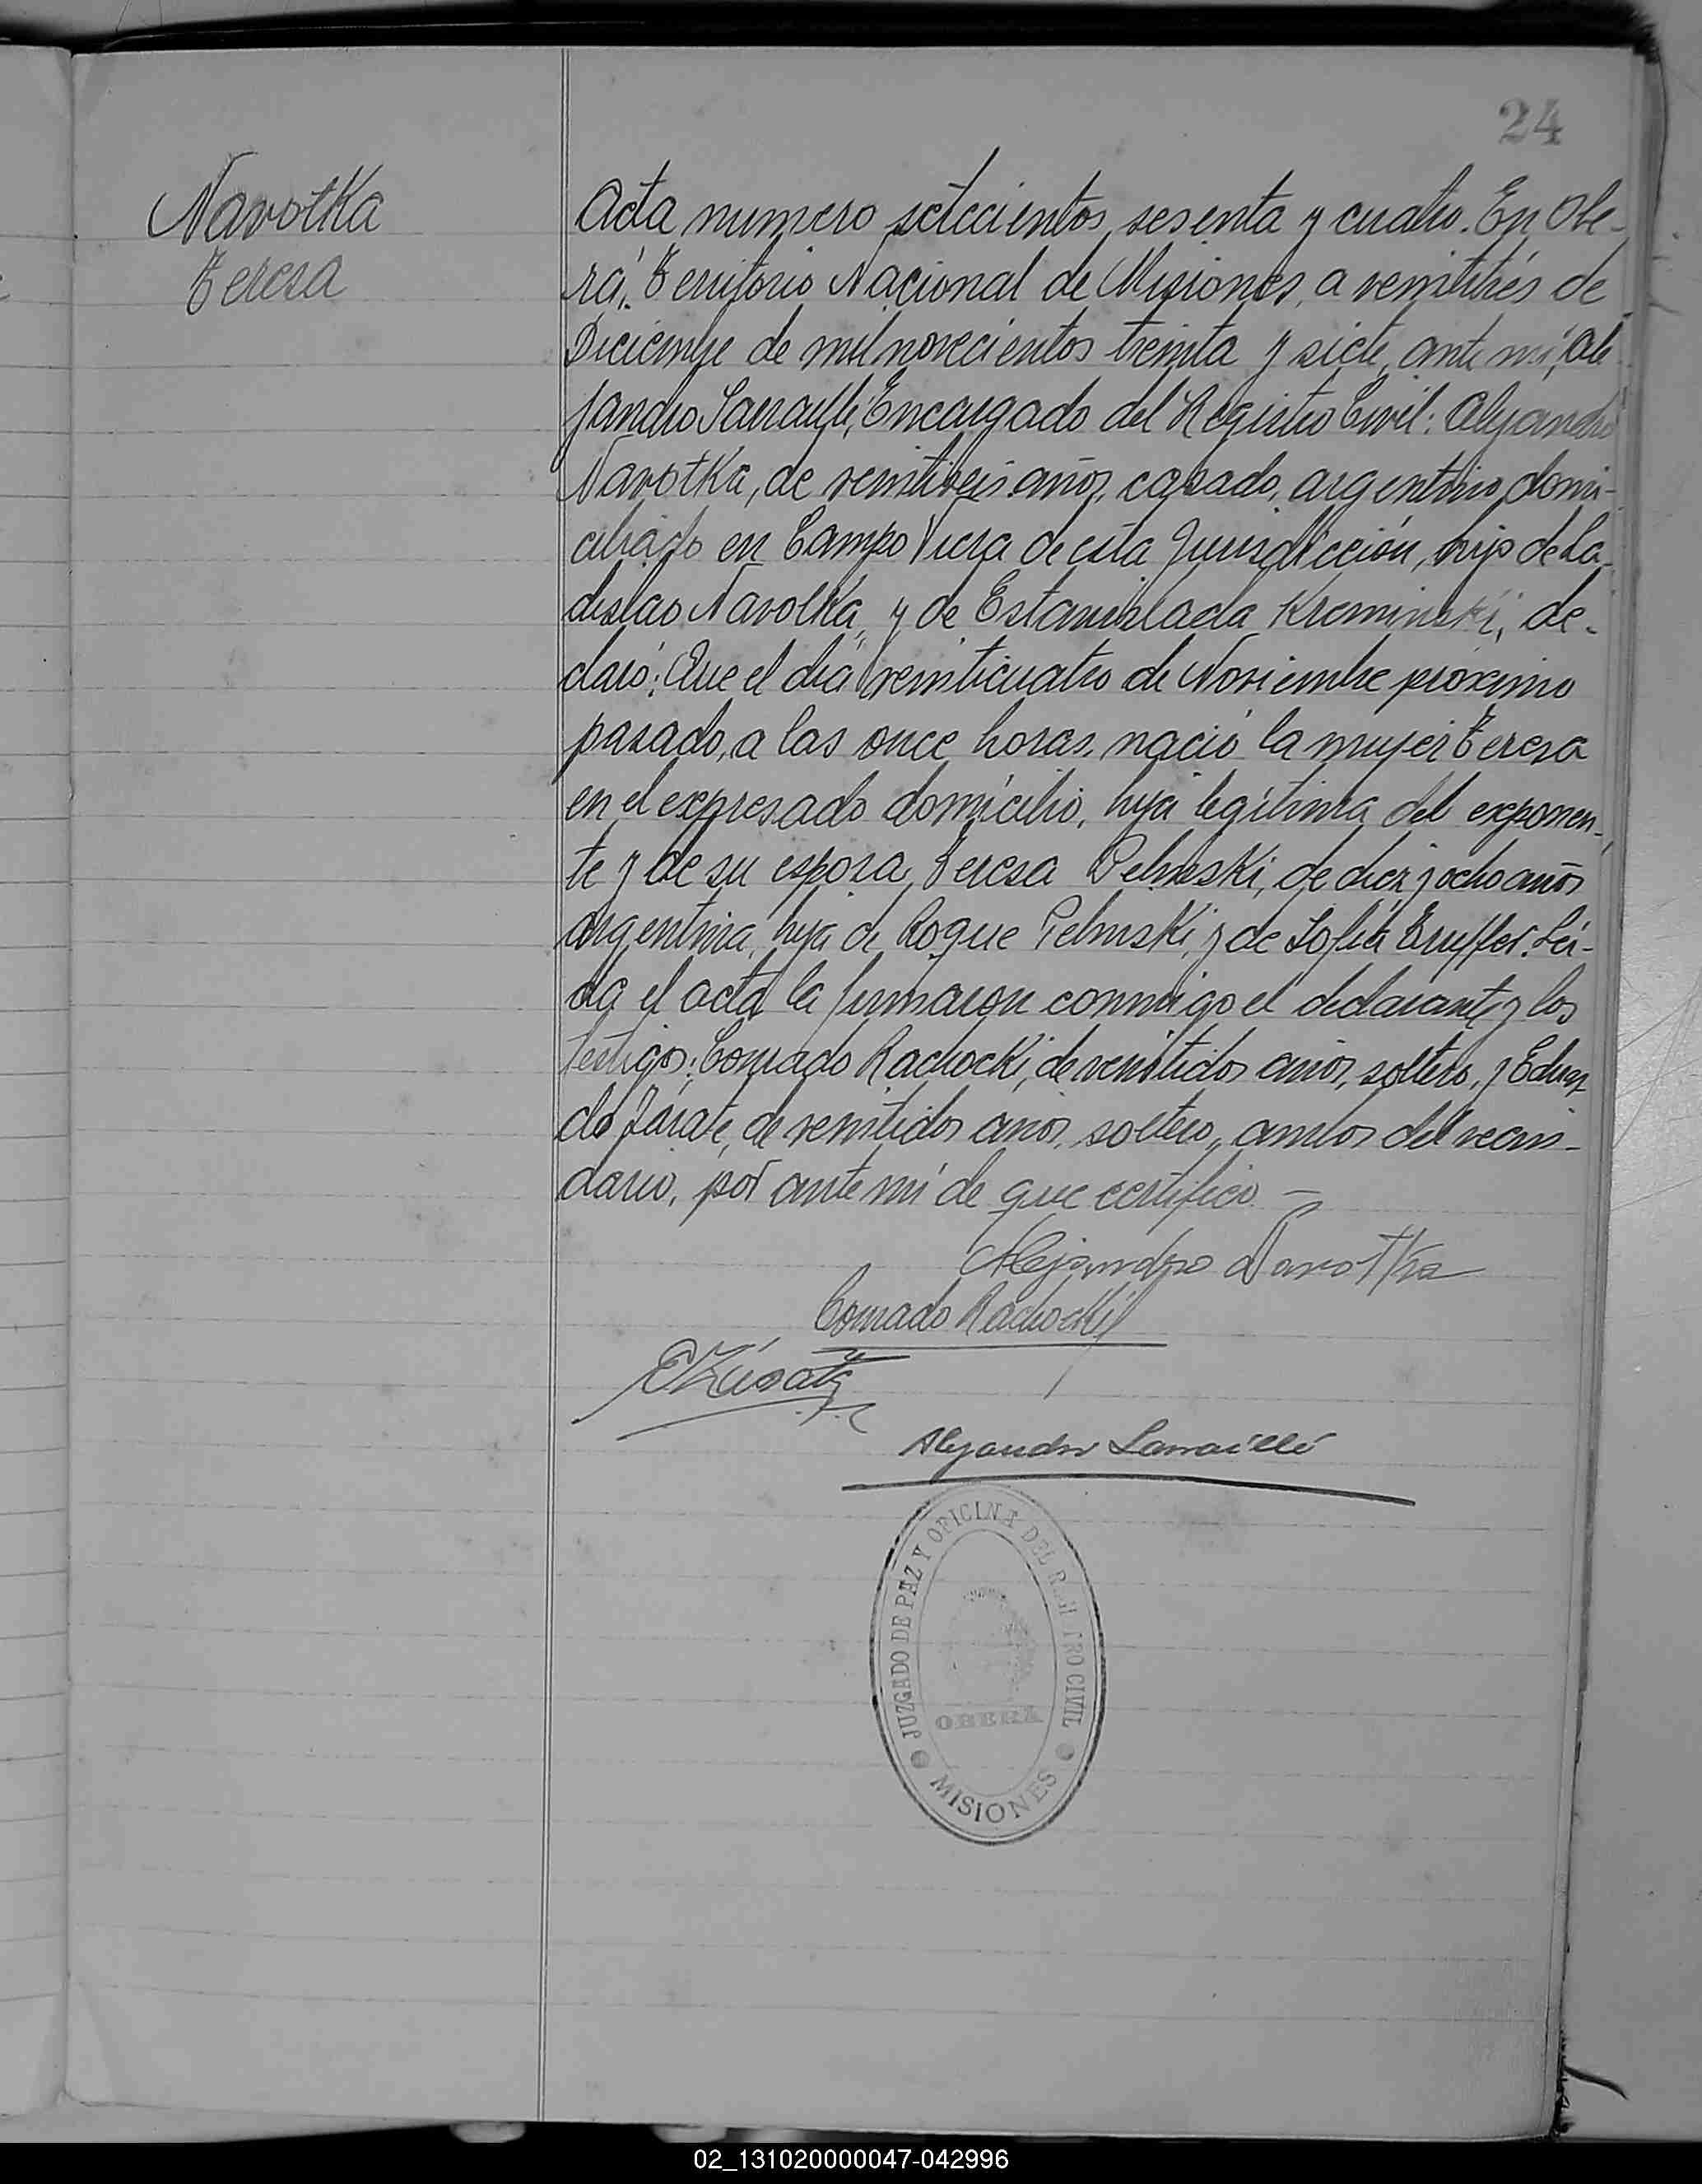 24
Navotka
Teresa
Acta numero setecientos sesenta y cuatro. En Obe-
rá, Territorio Nacional de Misiones, a veintitrés de
Diciembre de mil novecientos treinta y siete, ante mí, Ale
jandro Sarraillé, Encargado del Registro Civil: Alejandro
Navotka, de veintiseis años, casado, argentino, domi-
ciliado en Campo Viera de esta Jurisdicción, hijo de La-
dislao Navotka, y de Estanislada Krominski, de-
claró: Que el día veinticuatro de Noviembre próximo
pasado, a las once horas, nació la mujer Teresa
en el expresado domicilio, hija legítima del exponen-
te y de su esposa, Teresa Pelinski, de diez y ocho años
argentina, hija de Roque Pelinski, y de Sofía. Leí-
da el acta la firmaron conmigo el declarante y los
testigos: Conrado Rachocki, de veintidos años, soltero, y Eduar
do Zárate, de veintidos años, soltero, ambos del vecin-
dario, por ante mí de que certifico. —
Alejandro Navotka
Conrado Rachocki
E Zárate
Alejandro Sarraillé
JUZGADO DE PAZ Y OFICINA DEL REGISTRO CIVIL
OBERÁ
MISIONES
02_131020000047-042996